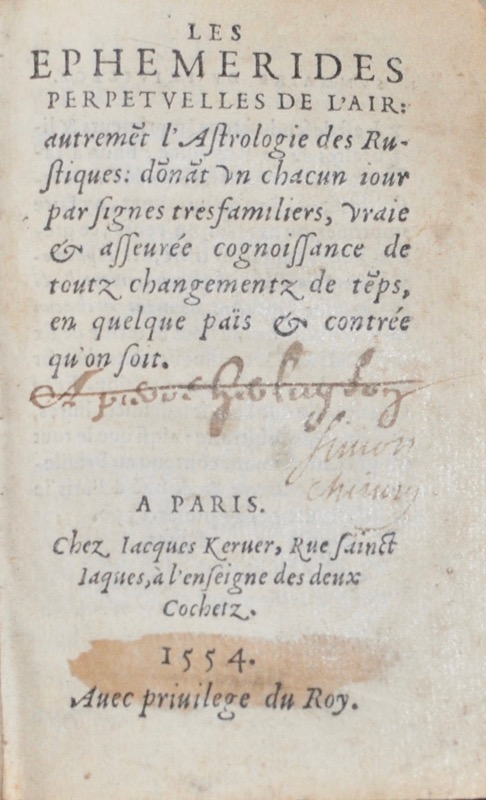 LES
EPHEMERIDES
PERPETVELLES DE L'AIR:
autremēt l'Astrologie des Ru-
stiques: dōnāt vn chacun iour
par signes tresfamiliers, vraie
& asseurée cognoissance de
toutz changementz de tēps,
en quelque païs & contrée
qu'on soit.
A
Simon
A PARIS.
Chez Iacques Keruer, Rue sainct
Iaques, à l'enseigne des deux
Cochetz.
1554.
Auec priuilege du Roy.